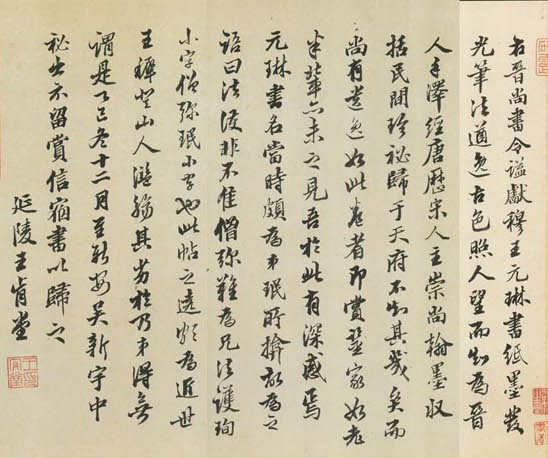 右晉尚書令諡獻穆王元琳書紙墨發
光筆法遒逸古色照人望而知為晉
人手澤經唐歷宋人主崇尚翰墨收
括民間珍秘歸于天府不知其幾矣而
尚有遺逸如此卷者即賞鑒家如老
米輩亦未之見吾於此有深感焉
元琳書名當時頗為弟珉所掩故為之
語曰法護非不佳僧彌難為兄法護珣
小字僧彌珉小字也此帖之為近世
王穉登山人濫觴其劣於乃弟得無
謂是乙巳冬十二月至新安吳新宇中
秘出示留賞信宿書以歸之
延陵王肯堂